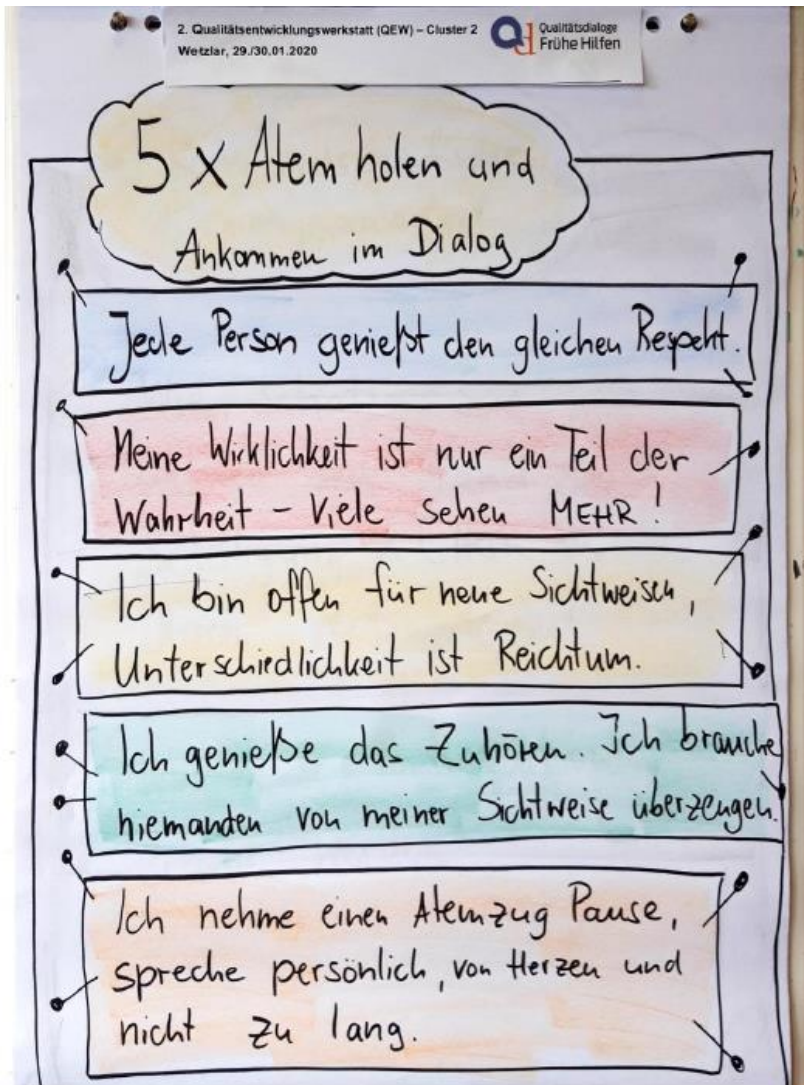 2. Qualitätsentwicklungswerkstatt (QEW) – Cluster 2
Wetzlar, 29./30.01.2020
Qualitätsdialoge
Frühe Hilfen
5 x Atem holen und
Ankommen im Dialog
Jede Person genießt den gleichen Respekt.
Meine Wirklichkeit ist nur ein Teil der
Wahrheit – Viele sehen MEHR!
Ich bin offen für neue Sichtweisen,
Unterschiedlichkeit ist Reichtum.
Ich genieße das Zuhören. Ich brauche
niemanden von meiner Sichtweise überzeugen.
Ich nehme einen Atemzug Pause,
spreche persönlich, von Herzen und
nicht zu lang.